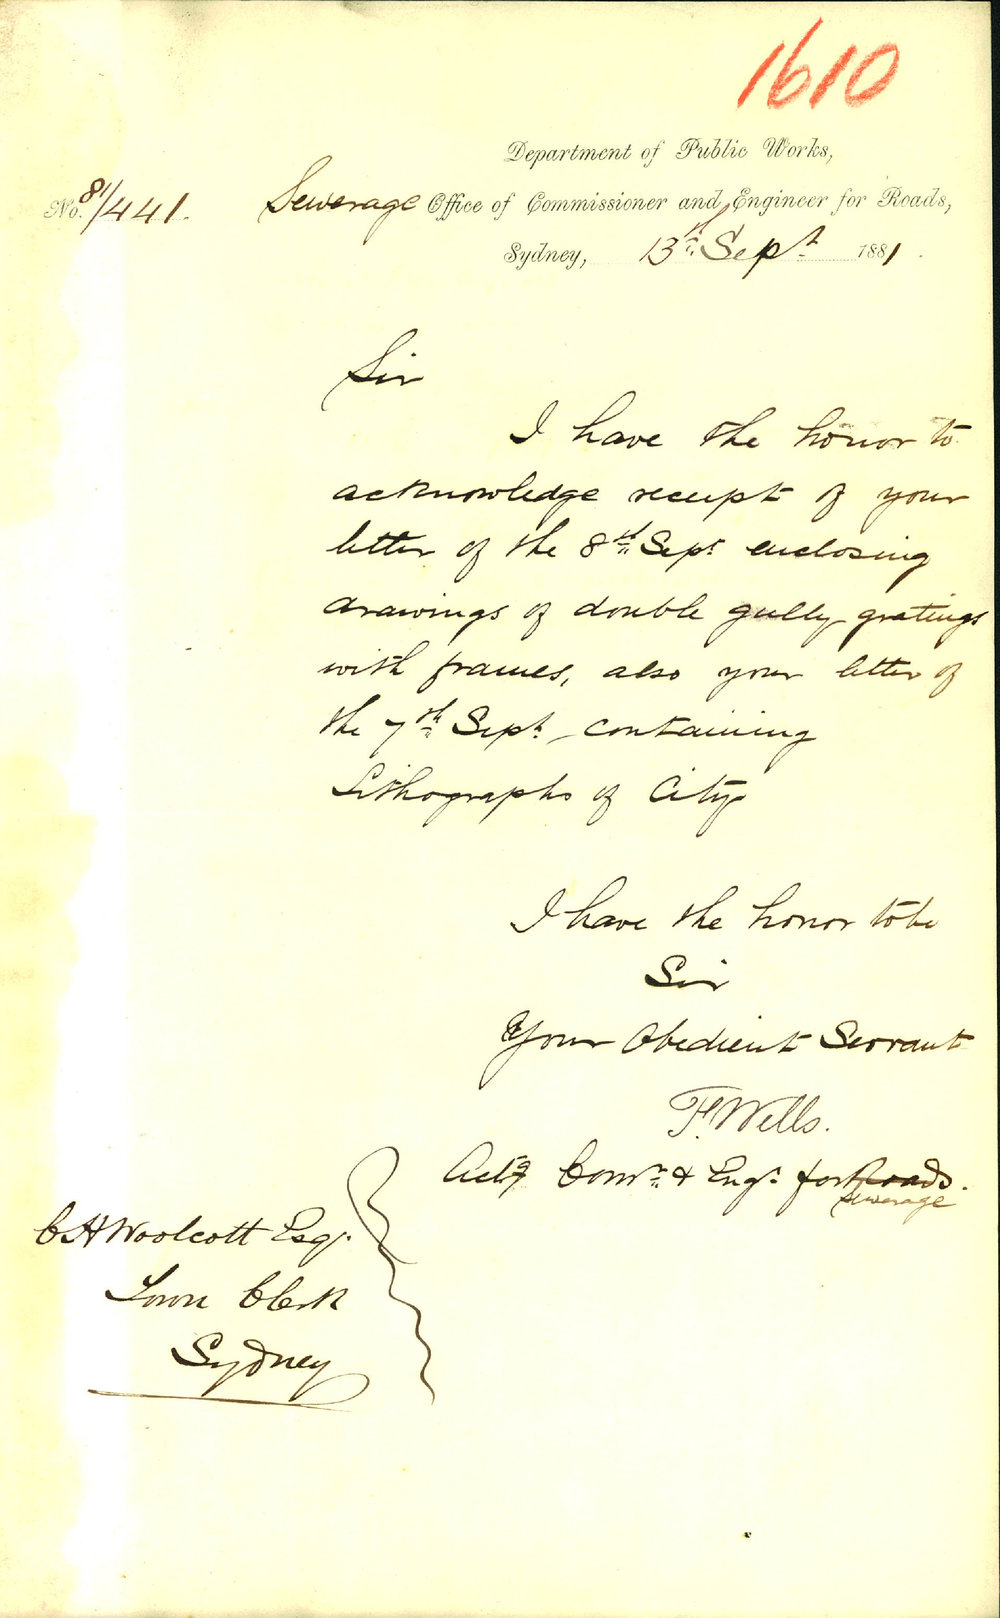 1610
Department of Public Works,
No. 81/441. Sewerage Office of Commissioner and Engineer for Roads,
Sydney, 13th Sept 1881.
Sir
I have the honor to
acknowledge receipt of your
letter of the 8th Sept enclosing
drawings of double gully gratings
with frames, also your letter of
the 7th Sept. containing
Lithographs of City
I have the honor to be
Sir
Your Obedient Servant
F. Wells.
Actg Comr. & Engr. for Roads.
Sewerage
C H Woolcott Esqr.
Town Clerk
Sydney